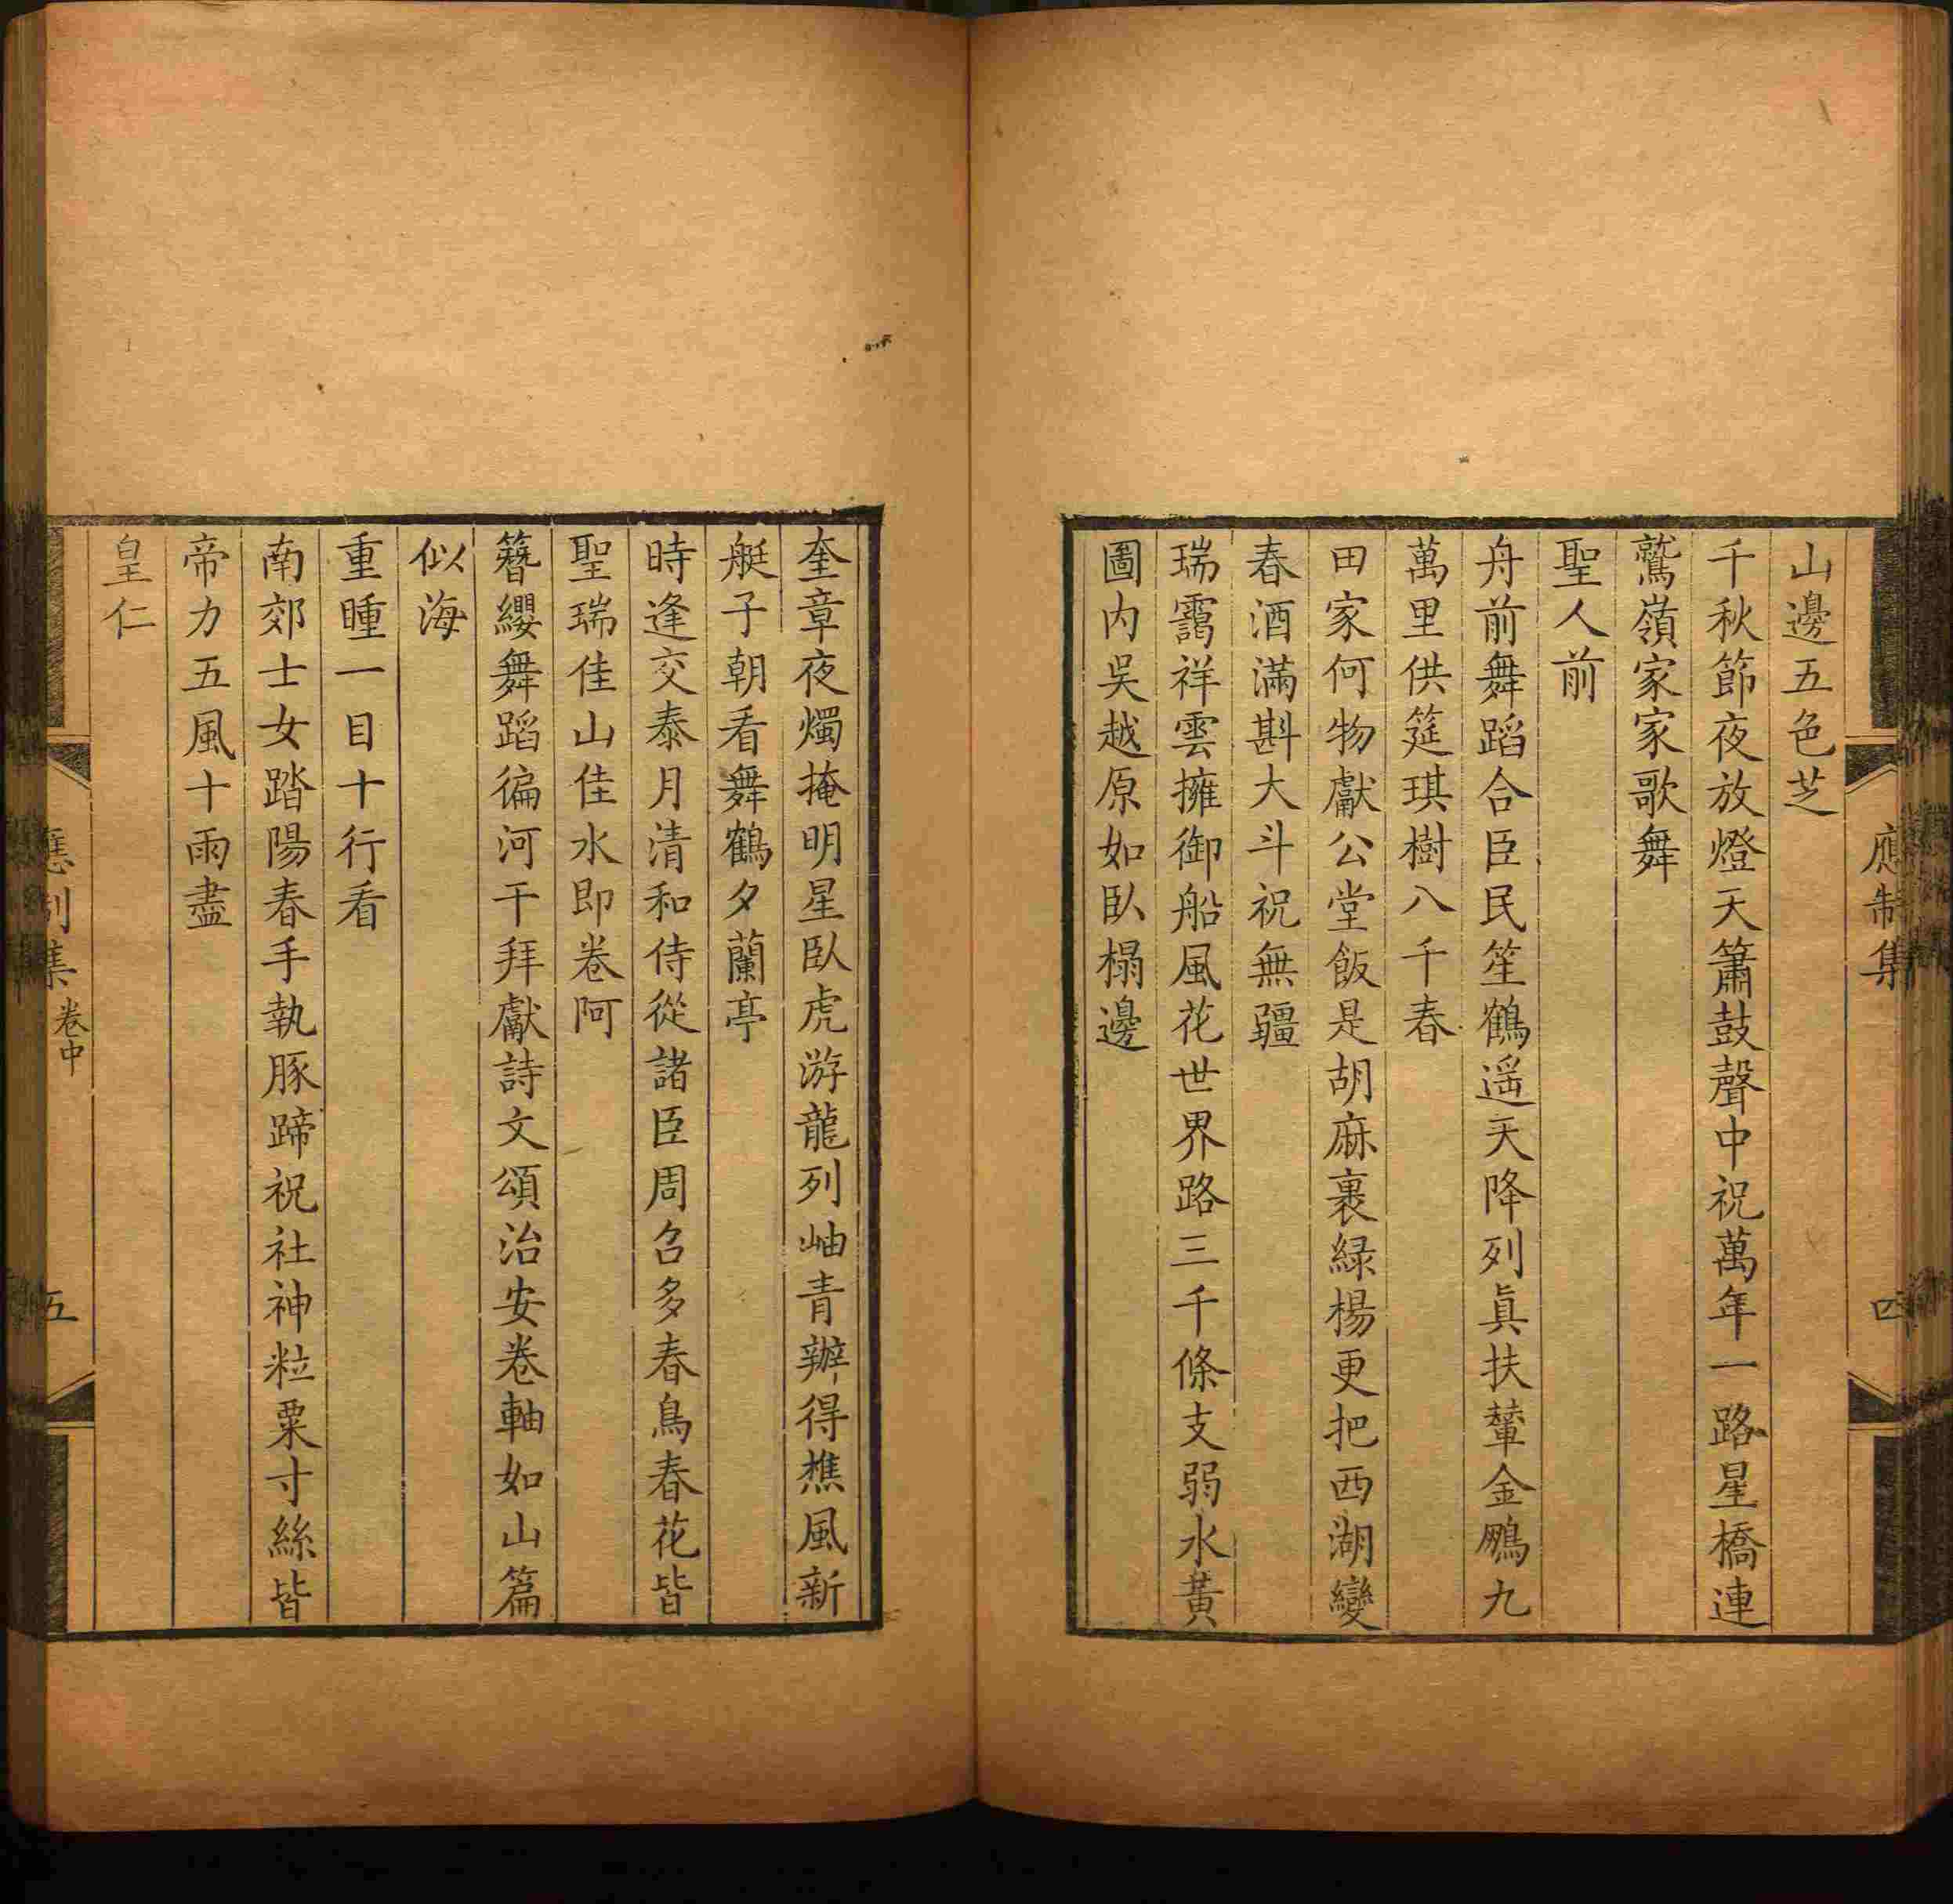 應制集
四
山邊五色芝
千秋節夜放燈天簫鼓聲中祝萬年一路星橋連
鷲嶺家家歌舞
聖人前
舟前舞蹈合臣民笙鶴遥天降列眞扶輦金鵰九
萬里供筵琪樹八千春
田家何物獻公堂飯是胡麻裹緑楊更把西湖變
春酒滿斟大斗祝無疆
瑞靄祥雲擁御船風花世界路三千條支弱水黃
圖内吳越原如臥榻邊
奎章夜燭掩明星臥虎游龍列岫青辦得樵風新
艇子朝看舞鶴夕蘭亭
時逢交泰月清和侍從諸臣周召多春鳥春花皆
聖瑞佳山佳水即卷阿
簪纓舞蹈徧河干拜獻詩文頌治安卷軸如山篇
似海
重瞳一目十行看
南郊士女踏陽春手執豚蹄祝社神粒粟寸絲皆
帝力五風十雨盡
皇仁
應制集
卷中
五